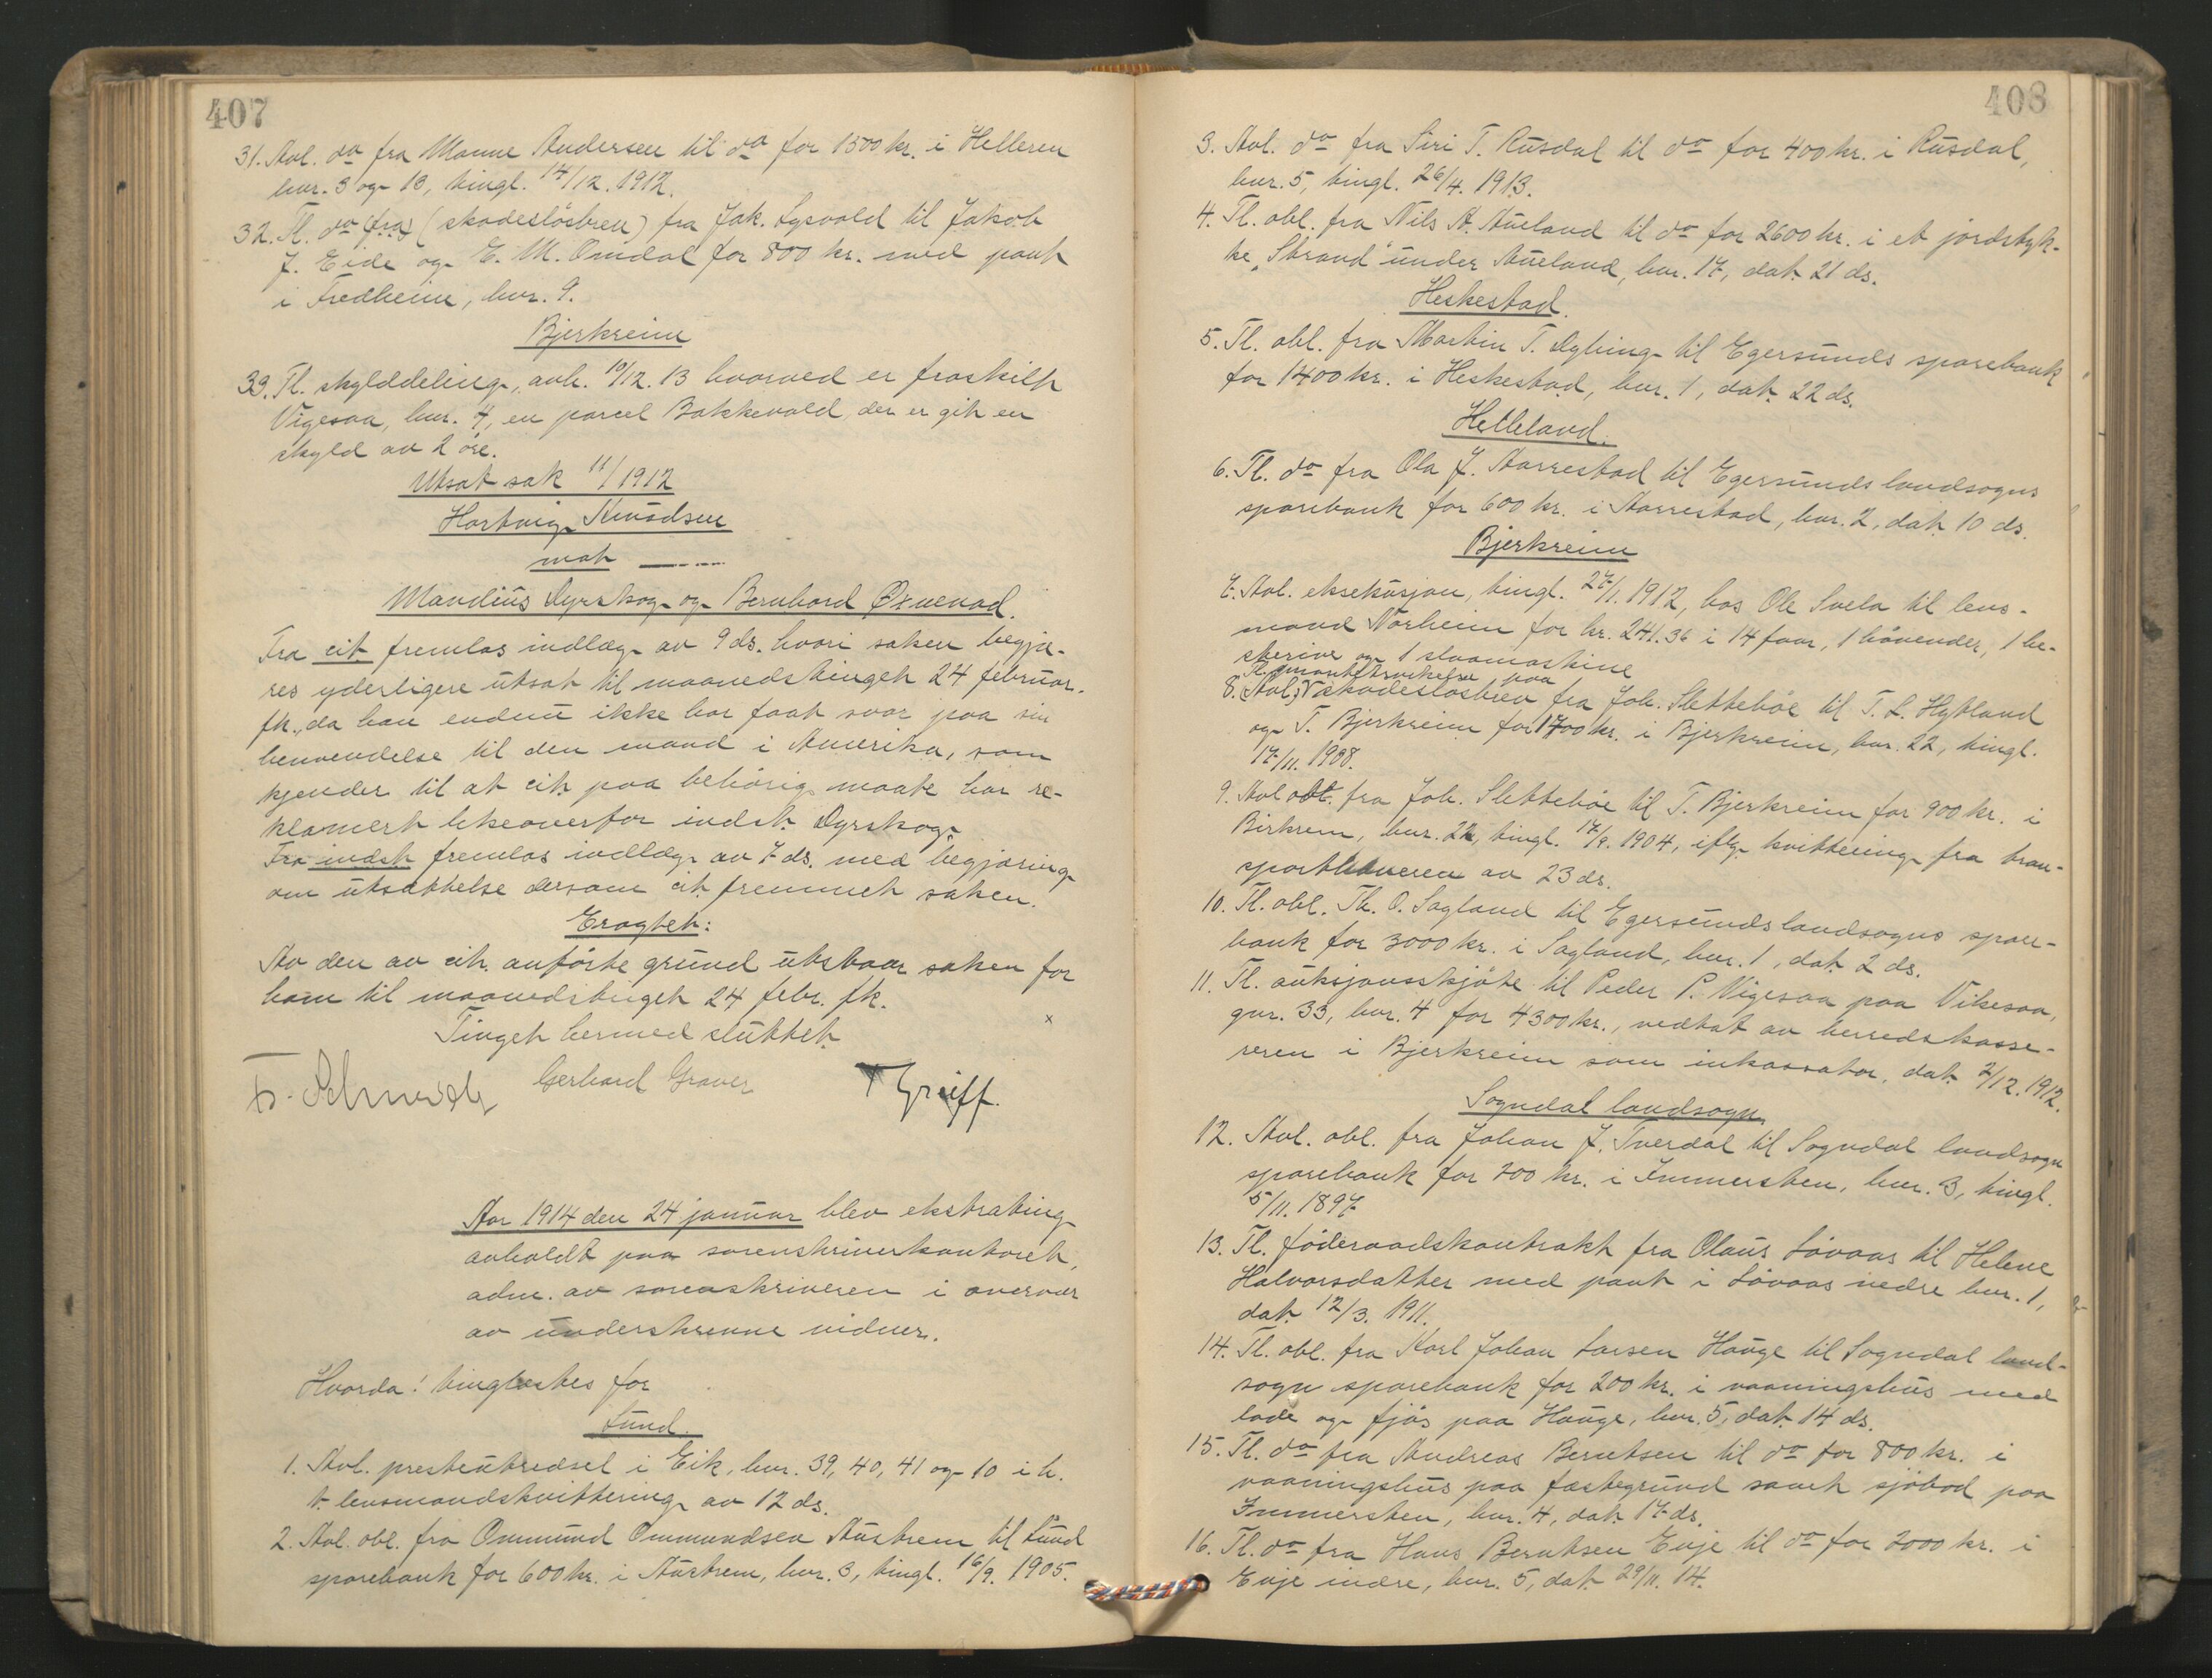 407
31. Avl. do fra Monne Andersen til do for 1500 kr. i Helleren
bnr. 3 og 13, tingl. 14/12. 1912.
32. Tl. do (fra) (skadesløsbrev) fra Jak. Lysvold til Jakob
J. Eide og E. M. Omdal for 800 kr. med pant
i Fredheim, bnr. 9.
Bjerkreim
33. Tl. skylddeling, avh. 10/12. 13 hvorved er fraskilt
Vigesaa, bnr. 4, en parcel Bakkevold, der er git en
skyld av 2 øre.
Utsat sak 11/1912
Hartvig Knudsen
mot
Mandius Dyrskog og Bernhard Øxnevad.
Fra cit. fremlas indlæg av 9 ds. hvori saken begjæ-
res yderligere utsat til maanedstinget 24 februar
fk., da han endnu ikke har faat svar paa sin
henvendelse til den mand i Amerika, som
kjender til at cit. paa behörig maate har re-
klamert likeoverfor indst. Dyrskog.
Fra indst. fremlas indlæg av 7 ds. med begjæring
om utsættelse dersom cit. fremmet saken.
Eragtet:
Av den av cit. anförte grund utstaar saken for
ham til maanedstinget 24 febr. fk.
Tinget hermed sluttet.
Gerhard Graver
T Greiff.
Aar 1914 den 24 januar blev ekstrating
avholdt paa sorenskriverkontoret,
adm. av sorenskriveren i overvær
av underskrevne vidner.
Hvorda! tinglæstes for
Lund.
1. Avl. presteutredsel i Eik, bnr. 39, 40, 41 og 10 i h.
t. lensmandskvittering av 12 ds.
2. Avl. obl. fra Ommund Ommundsen Austrem til Lund
sparebank for 600 kr. i Austrem, bnr. 3, tingl. 16/9. 1905.
408
3. Avl. do fra Siri T. Rusdal til do for 400 kr. i Rusdal,
bnr. 5, tingl. 26/4. 1913.
4. Tl. obl. fra Nils A. Aueland til do for 2600 kr. i et jordstyk-
ke „Strand" under Aueland, bnr. 17, dat. 21 ds.
Heskestad.
5. Tl. obl. fra Martin T. Dybing til Egersunds sparebank
for 1400 kr. i Heskestad, bnr. 1, dat. 22 ds.
Helleland.
6. Tl. do fra Ola J. Aarrestad til Egersunds landsogns
sparebank for 600 kr. i Aarrestad, bnr. 2, dat. 10 ds.
Bjerkreim
7. Avl. eksekusjon, tingl. 27/1. 1912, hos Ole Svela til lens-
mand Norheim for kr. 241.36 i 14 faar, 1 høvender, 1
og 1 slaamaskine
paa
8. (Avl.) skadesløsbrev fra Joh. Slettebøe til T. L. Hytland
og T. Bjerkreim for 1700 kr. i Bjerkreim, bnr. 22, tingl.
17/11. 1908.
9. Avl obl. fra Joh. Slettebøe til T. Bjerkreim for 900 kr. i
Birkrem, bnr. 22, tingl. 17/9. 1904, iflg. kvittering fra tran-
sporthaveren av 23 ds.
10. Tl. obl. Th. O. Sagland til Egersunds landsogns spare-
bank for 3000 kr. i Sagland, bnr. 1, dat. 2 ds.
11. Tl. auksjonsskjøte til Peder P. Vigesaa paa Vikesaa,
gnr. 33, bnr. 4 for 4300 kr., vedtat av herredskasse-
reren i Bjerkreim som inkassator, dat. 2/12. 1912.
Sogndal landsogn.
12. Avl. obl. fra Johan J. Tverdal til Sogndal landsogn
sparebank for 200 kr. i Immersten, bnr. 3, tingl.
5/11. 1897
13. Tl. føderaadskontrakt fra Olaus Løvaas til Helene
Halvorsdatter med pant i Løvaas nedre bnr. 1,
dat. 12/3. 1911.
14. Tl. obl. fra Karl Johan Larsen Hauge til Sogndal land-
sogn sparebank for 200 kr. i vaaningshus med
lade og fjøs paa Hauge, bnr. 5, dat. 14 ds.
15. Tl. do fra Andreas Berntsen til do for 800 kr. i
vaaningshus paa fæstegrund samt sjøbod paa
Immersten, bnr. 4, dat. 17 ds.
16. Tl. do fra Hans Berntsen Evje til do for 2000 kr. i
Evje indre, bnr. 5, dat. 29/11. 14.